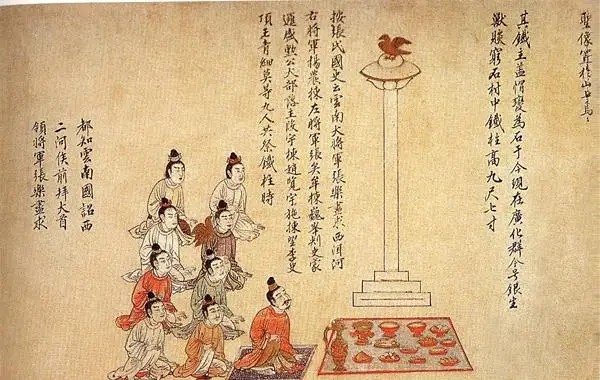 聖像置於山
其鐵主蓋帽變為石于今現在廣化郡今号銀生
獸賧窮石村中鐵柱高九尺七寸
按張氏國史云雲南大將軍張樂盡求西洱河
右將軍楊農棟左將軍張矣牟棟巍峯刾史蒙
邏盛勲公大部落主段宇棟趙覽宇施棟望李史
項王青細莫等九人共祭鐵柱時
都知雲南國詔西
二河侯前拜大首
領將軍張樂盡求